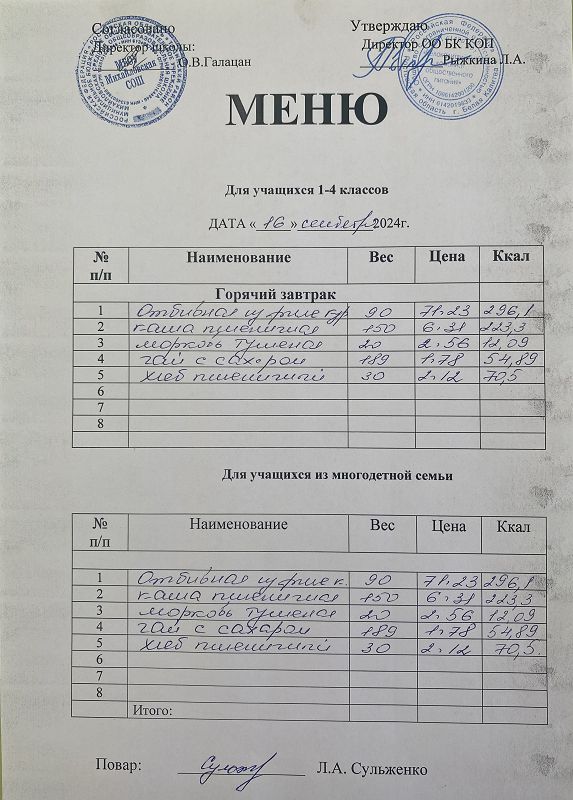 Согласовано Утверждаю
Директор школы: Директор ОО БК КОП
О.В.Галацан Рыжкина Л.А.
МБОУ
Михайловская
СОШ
МЕНЮ
Для учащихся 1-4 классов
ДАТА « 16 » сентября 2024г.
№ п/п Наименование Вес Цена Ккал
Горячий завтрак
1 Отбивная из филе кур 90 71.23 296,1
2 каша пшеничная 150 6.31 223,3
3 морковь тушеная 20 2.56 12,09
4 чай с сахаром 189 1.78 54,89
5 хлеб пшеничный 30 2.12 70,5
6
7
8
Для учащихся из многодетной семьи
№ п/п Наименование Вес Цена Ккал
1 Отбивная из филе к. 90 71.23 296,1
2 каша пшеничная 150 6.31 223,3
3 морковь тушеная 20 2.56 12,09
4 чай с сахаром 189 1.78 54,89
5 хлеб пшеничный 30 2.12 70,5
6
7
8
Итого:
Повар: Л.А. Сульженко